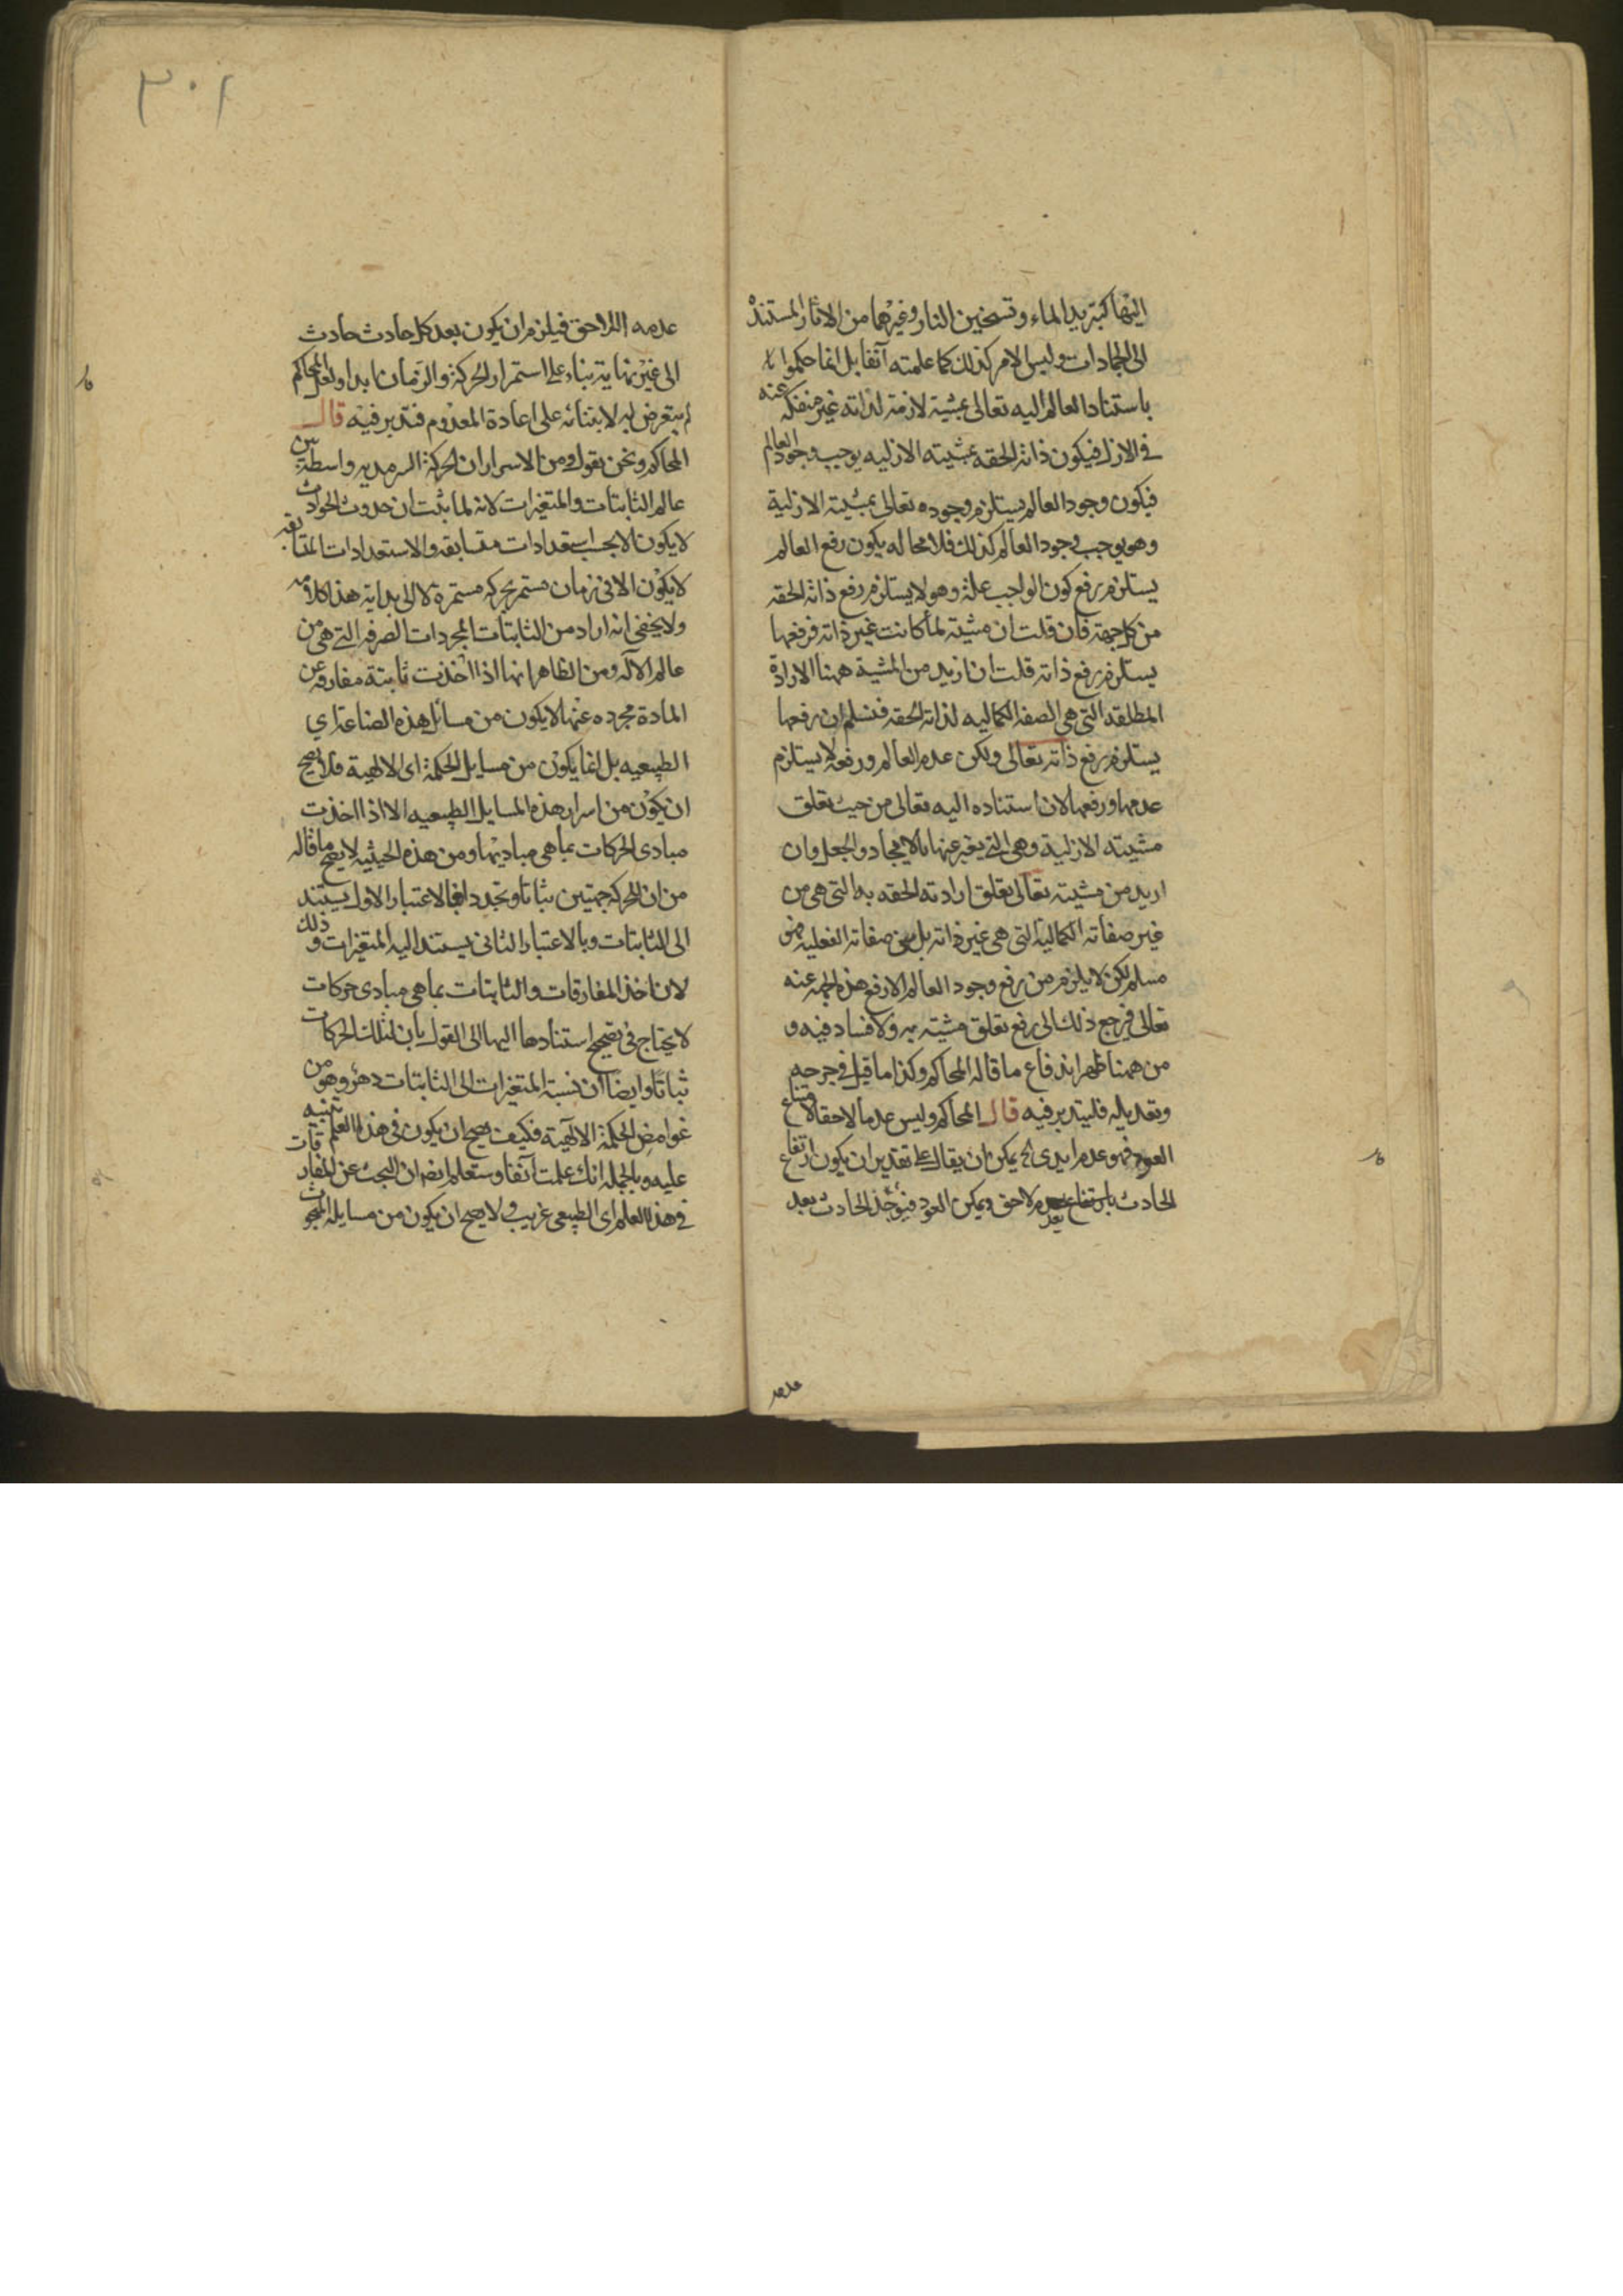 اليها كتبريد الماء وتسخين النار وغيرهما من الاثار المستندة
الى الجمادات وليس الامر كذلك كما علمته آنفا بل انما حكموا
باستناد العالم اليه تعالى بمشية لازمة لذاته غير منفكه عنه
في الازل فيكون ذاته الحقه بمشيته الازليه يوجب وجود العالم
فيكون وجود العالم يستلزم وجوده تعالى بمشيته الازلية
وهو يوجب وجود العالم كذلك فلا محاله يكون رفع العالم
يستلزم رفع كون الواجب علة وهو لا يستلزم رفع ذاته الحقه
من كل جهة فان قلت ان مشيته لما كانت غير ذاته فرفعها
يستلزم رفع ذاته قلت ان اريد من المشية ههنا الارادة
المطلقه التي هي الصفه الكماليه لذاته الحقه فنسلم ان رفعها
يستلزم رفع ذاته تعالى ولكن عدم العالم ورفعه لا يستلزم
عدمها ورفعها لان استناده اليه تعالى من حيث تعلق
مشيته الازلية وهي التي يعبر عنها بالايجاد والجعل وان
اريد من مشيته تعالى تعلق ارادته الحقه به التي هي من
غير صفاته الكمالية التي هي غير ذاته بل من صفاته الفعليه فهو
مسلم لكن لا يلزم من رفع وجود العالم الا رفع هذه الجهه عنه
تعالى فيرجع ذلك الى رفع تعلق مشيته به ولا فساد فيه و
من ههنا ظهر اندفاع ما قاله المحاكم وكذا ما قيل في جرحه
وتعديله فليتدبر فيه قال المحاكم وليس عدما لاحقا لامتناع
العود فهو عدم ابدى الخ يمكن ان يقال على تقدير ان يكون ارتفاع
الحادث بارتفاع بعدم لاحق ويمكن العود فيؤخذ الحادث بعد
عدمه
٣٠١
عدمه اللاحق فيلزم ان يكون بعد كل حادث حادث
الى غير نهاية بناء على استمرار الحركة والزمان ابدا ولعل المحاكم
لم يتعرض له لابتنائه على اعادة المعدوم فتدبر فيه قال
المحاكم ونحن نقول ومن الاسرار ان الحركة السرمديه واسطة بين
عالم الثابتات والمتغيرات لانه لما ثبت ان حدوث الحوادث
لا يكون الا بحسب استعدادات متعاقبه والاستعدادات المتعاقبه
لا يكون الا في زمان مستمر بحركه مستمرة لا الى بداية هذا كلامه
ولا يخفى انه اراد من الثابتات المجردات الصرفه التي هي من
عالم الاله ومن الظاهر انها اذا اخذت ثابتة مفارقه عن
المادة مجرده عنها لا يكون من مسائل هذه الصناعة اي
الطبيعيه بل انما يكون من مسايل الحكمة اى الالهية فلا يصح
ان يكون من اسرار هذه المسايل الطبيعيه الا اذا اخذت
مبادى الحركات بما هي مباديها ومن هذه الحيثيه لا يصح ما قاله
من ان للحركة جهتين ثباتا وتجددا فبالاعتبار الاول يستند
الى الثابتات وبالاعتبار الثاني يستند اليه المتغيرات وذلك
لان اخذ المفارقات والثابتات بما هي مبادى حركات
لا يحتاج في تصحيح استنادها اليها الى القول بان لتلك الحركات
ثباتا وايضا ان نسبة المتغيرات الى الثابتات دهر وهو من
غوامض الحكمة الالهية فكيف يصح ان يكون في هذا العلم تنبيه
عليه وبالجمله انك علمت آنفا وستعلم ايضا ان البحث عن المفارقات
في هذا العلم اى الطبيعى غريب ولا يصح ان يكون من مسايله المبحوث